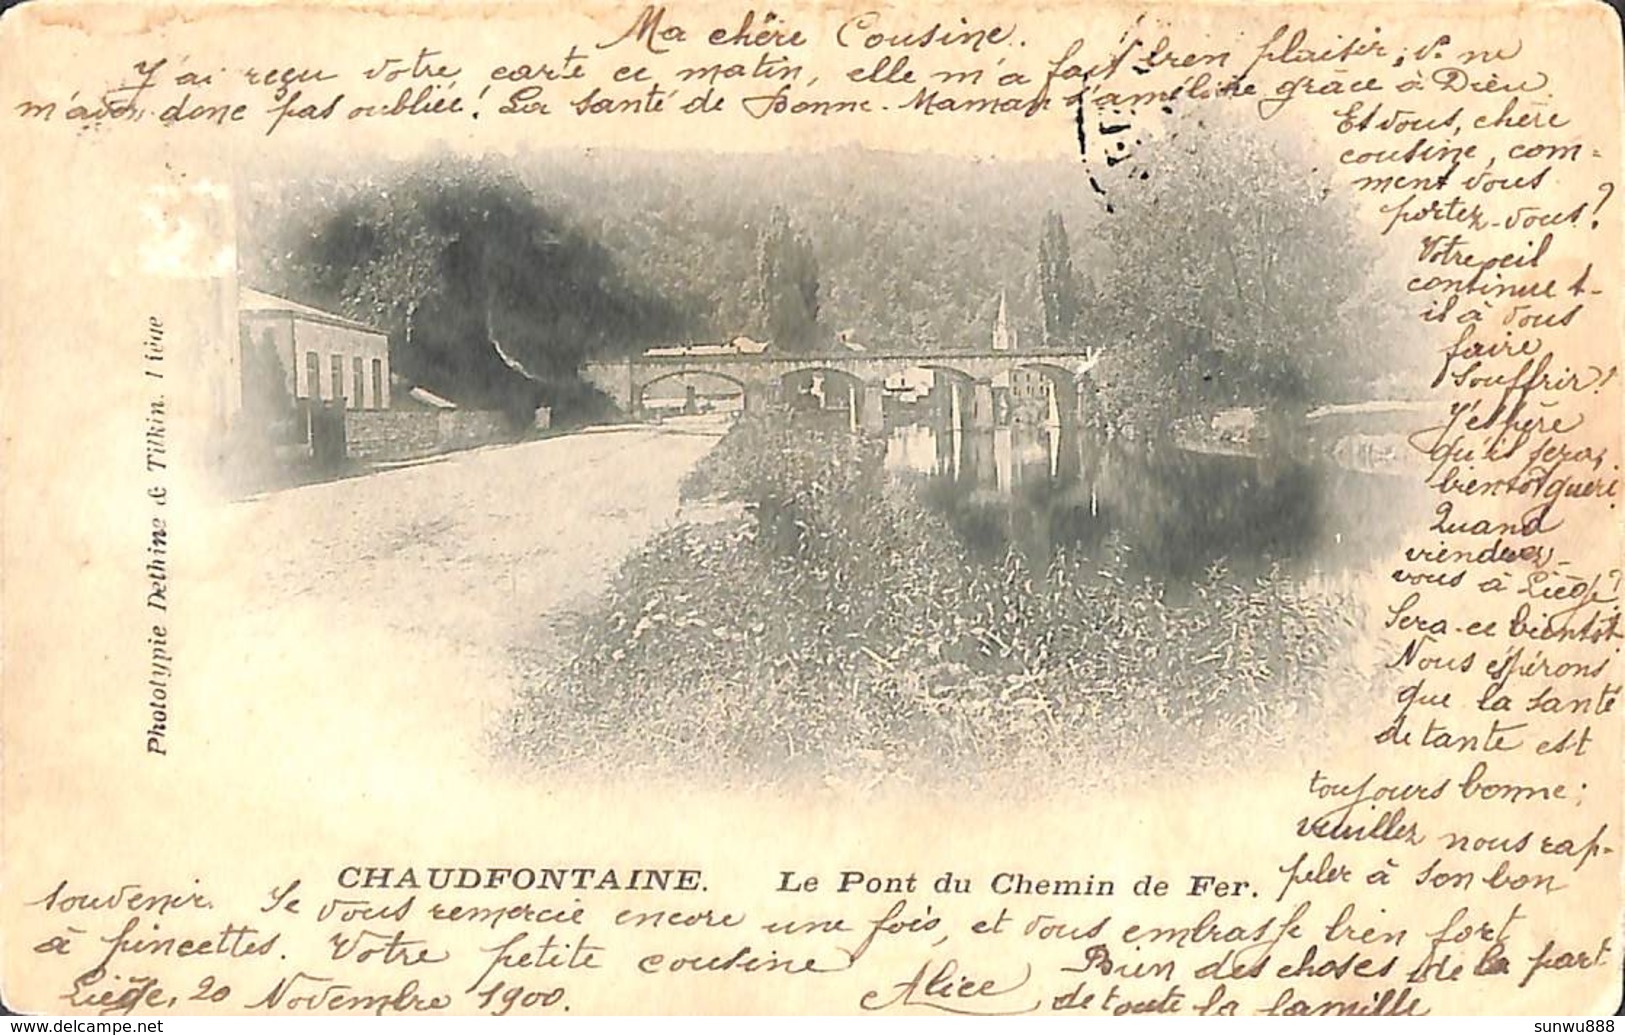 Ma chère Cousine.
J'ai reçu votre carte ce matin, elle m'a fait bien plaisir; v. ne
m'avez donc pas oubliée! La santé de Bonne-Maman s'améliore grâce à Dieu.
Et vous, chère
cousine, com-
ment vous
portez-vous?
Votre oeil
continue t-
il à vous
faire
souffrir?
J'espère
qu'il sera
bientôt guéri.
Quand
viendrez-
vous à Liège?
Sera-ce bientôt.
Nous espérons
que la santé
de tante est
toujours bonne;
veuillez nous rap-
peler à son bon
souvenir. Je vous remercie encore une fois, et vous embrasse bien fort
à pincettes. Votre petite cousine
Alice
Liège, 20 Novembre 1900.
Bien des choses de la part
de toute la famille
CHAUDFONTAINE. Le Pont du Chemin de Fer.
Phototypie Dethine & Tilkin. Liège
sunwu888